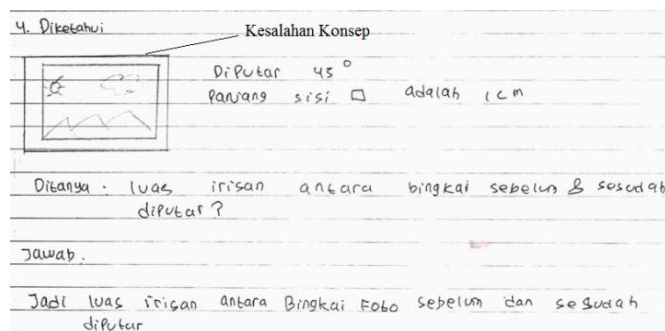 4. Diketahui
Kesalahan Konsep
Diputar 45°
Panjang sisi □ adalah 1 cm
Ditanya. luas irisan antara bingkai sebelum & sesudah
diputar?
Jawab.
Jadi luas irisan antara Bingkai Foto sebelum dan sesudah
diputar